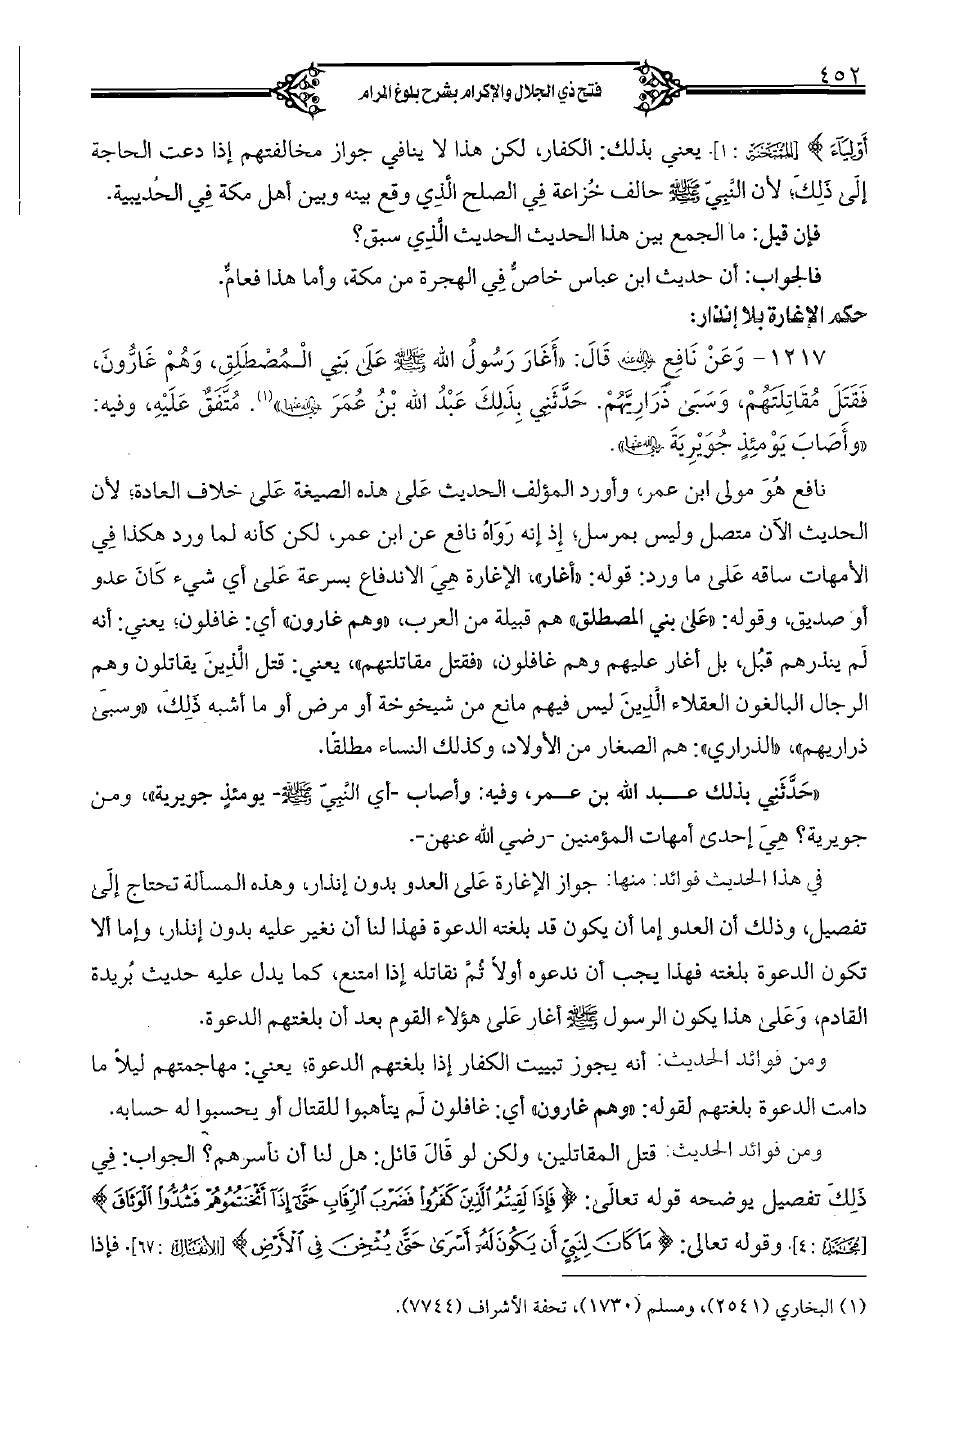 ٤٥٢
فتح ذي الجلال والإكرام بشرح بلوغ المرام
أَوْلِيَآءَ ﴾ [الممتحنة: ١]. يعني بذلك: الكفار، لكن هذا لا ينافي جواز مخالفتهم إذا دعت الحاجة
إلَى ذَلِكَ؛ لأن النَّبِيّ ﷺ حالف خُزاعة فِي الصلح الَّذِي وقع بينه وبين أهل مكة فِي الحُديبية.
فإن قيل: ما الجمع بين هذا الحديث الحديث الَّذِي سبق؟
فالجواب: أن حديث ابن عباس خاصٌّ فِي الهجرة من مكة، وأما هذا فعامٌّ.
حكم الإغارة بلا إنذار:
١٢١٧- وَعَنْ نَافِعٍ رضي الله عنه قَالَ: «أَغَارَ رَسُولُ الله ﷺ عَلَى بَنِي الْـمُصْطَلِقِ، وَهُمْ غَارُّونَ،
فَقَتَلَ مُقَاتِلَتَهُمْ، وَسَبَى ذَرَارِيَّهُمْ. حَدَّثَنِي بِذَلِكَ عَبْدُ الله بْنُ عُمَرَ رضي الله عنهما»(١). مُتَّفَقٌ عَلَيْهِ، وفيه:
«وأَصَابَ يَوْمَئِذٍ جُوَيْرِيَةَ رضي الله عنها».
نافع هُوَ مولى ابن عمر، وأورد المؤلف الحديث عَلَى هذه الصيغة عَلَى خلاف العادة؛ لأن
الحديث الآن متصل وليس بمرسل؛ إذ إنه رَوَاهُ نافع عن ابن عمر، لكن كأنه لما ورد هكذا فِي
الأمهات ساقه عَلَى ما ورد: قوله: «أغار»، الإغارة هِيَ الاندفاع بسرعة عَلَى أي شيء كَانَ عدو
أو صديق، وقوله: «عَلى بني المصطلق» هم قبيلة من العرب، «وهم غارون» أي: غافلون؛ يعني: أنه
لَم ينذرهم قبُل، بل أغار عليهم وهم غافلون، «فقتل مقاتلتهم»، يعني: قتل الَّذِينَ يقاتلون وهم
الرجال البالغون العقلاء الَّذِينَ ليس فيهم مانع من شيخوخة أو مرض أو ما أشبه ذَلِكَ، «وسبى
ذراريهم»، «الذراري»: هم الصغار من الأولاد، وكذلك النساء مطلقًا.
«حَدَّثَنِي بذلك عـــبد الله بن عـــمر، وفيه: وأصاب -أي النَّبِيّ ﷺ- يومئذٍ جويرية»، ومـن
جويرية؟ هِيَ إحدى أمهات المؤمنين -رضي الله عنهن-.
في هذا الحديث فوائد: منها: جواز الإغارة عَلَى العدو بدون إنذار، وهذه المسألة تحتاج إلَى
تفصيل، وذلك أن العدو إما أن يكون قد بلغته الدعوة فهذا لنا أن نغير عليه بدون إنذار، وإما ألا
تكون الدعوة بلغته فهذا يجب أن ندعوه أولاً ثُمَّ نقاتله إذا امتنع، كما يدل عليه حديث بُريدة
القادم، وَعَلَى هذا يكون الرسول ﷺ أغار عَلَى هؤلاء القوم بعد أن بلغتهم الدعوة.
ومن فوائد الحديث: أنه يجوز تبييت الكفار إذا بلغتهم الدعوة؛ يعني: مهاجمتهم ليلاً ما
دامت الدعوة بلغتهم لقوله: «وهم غارون» أي: غافلون لَم يتأهبوا للقتال أو يحسبوا له حسابه.
ومن فوائد الحديث: قتل المقاتلين، ولكن لو قَالَ قائل: هل لنا أن نأسرهم؟ الجواب: فِي
ذَلِكَ تفصيل يوضحه قوله تعالَى: ﴿ فَإِذَا لَقِيتُمُ ٱلَّذِينَ كَفَرُواْ فَضَرْبَ ٱلرِّقَابِ حَتَّىٰٓ إِذَآ أَثْخَنتُمُوهُمْ فَشُدُّواْ ٱلْوَثَاقَ ﴾
[محمد: ٤]. وقوله تعالى: ﴿ مَا كَانَ لِنَبِيٍّ أَن يَكُونَ لَهُۥٓ أَسْرَىٰ حَتَّىٰ يُثْخِنَ فِي ٱلْأَرْضِ ﴾ [الأنفال: ٦٧]. فإذا
(١) البخاري (٢٥٤١)، ومسلم (١٧٣٠)، تحفة الأشراف (٧٧٤٤).